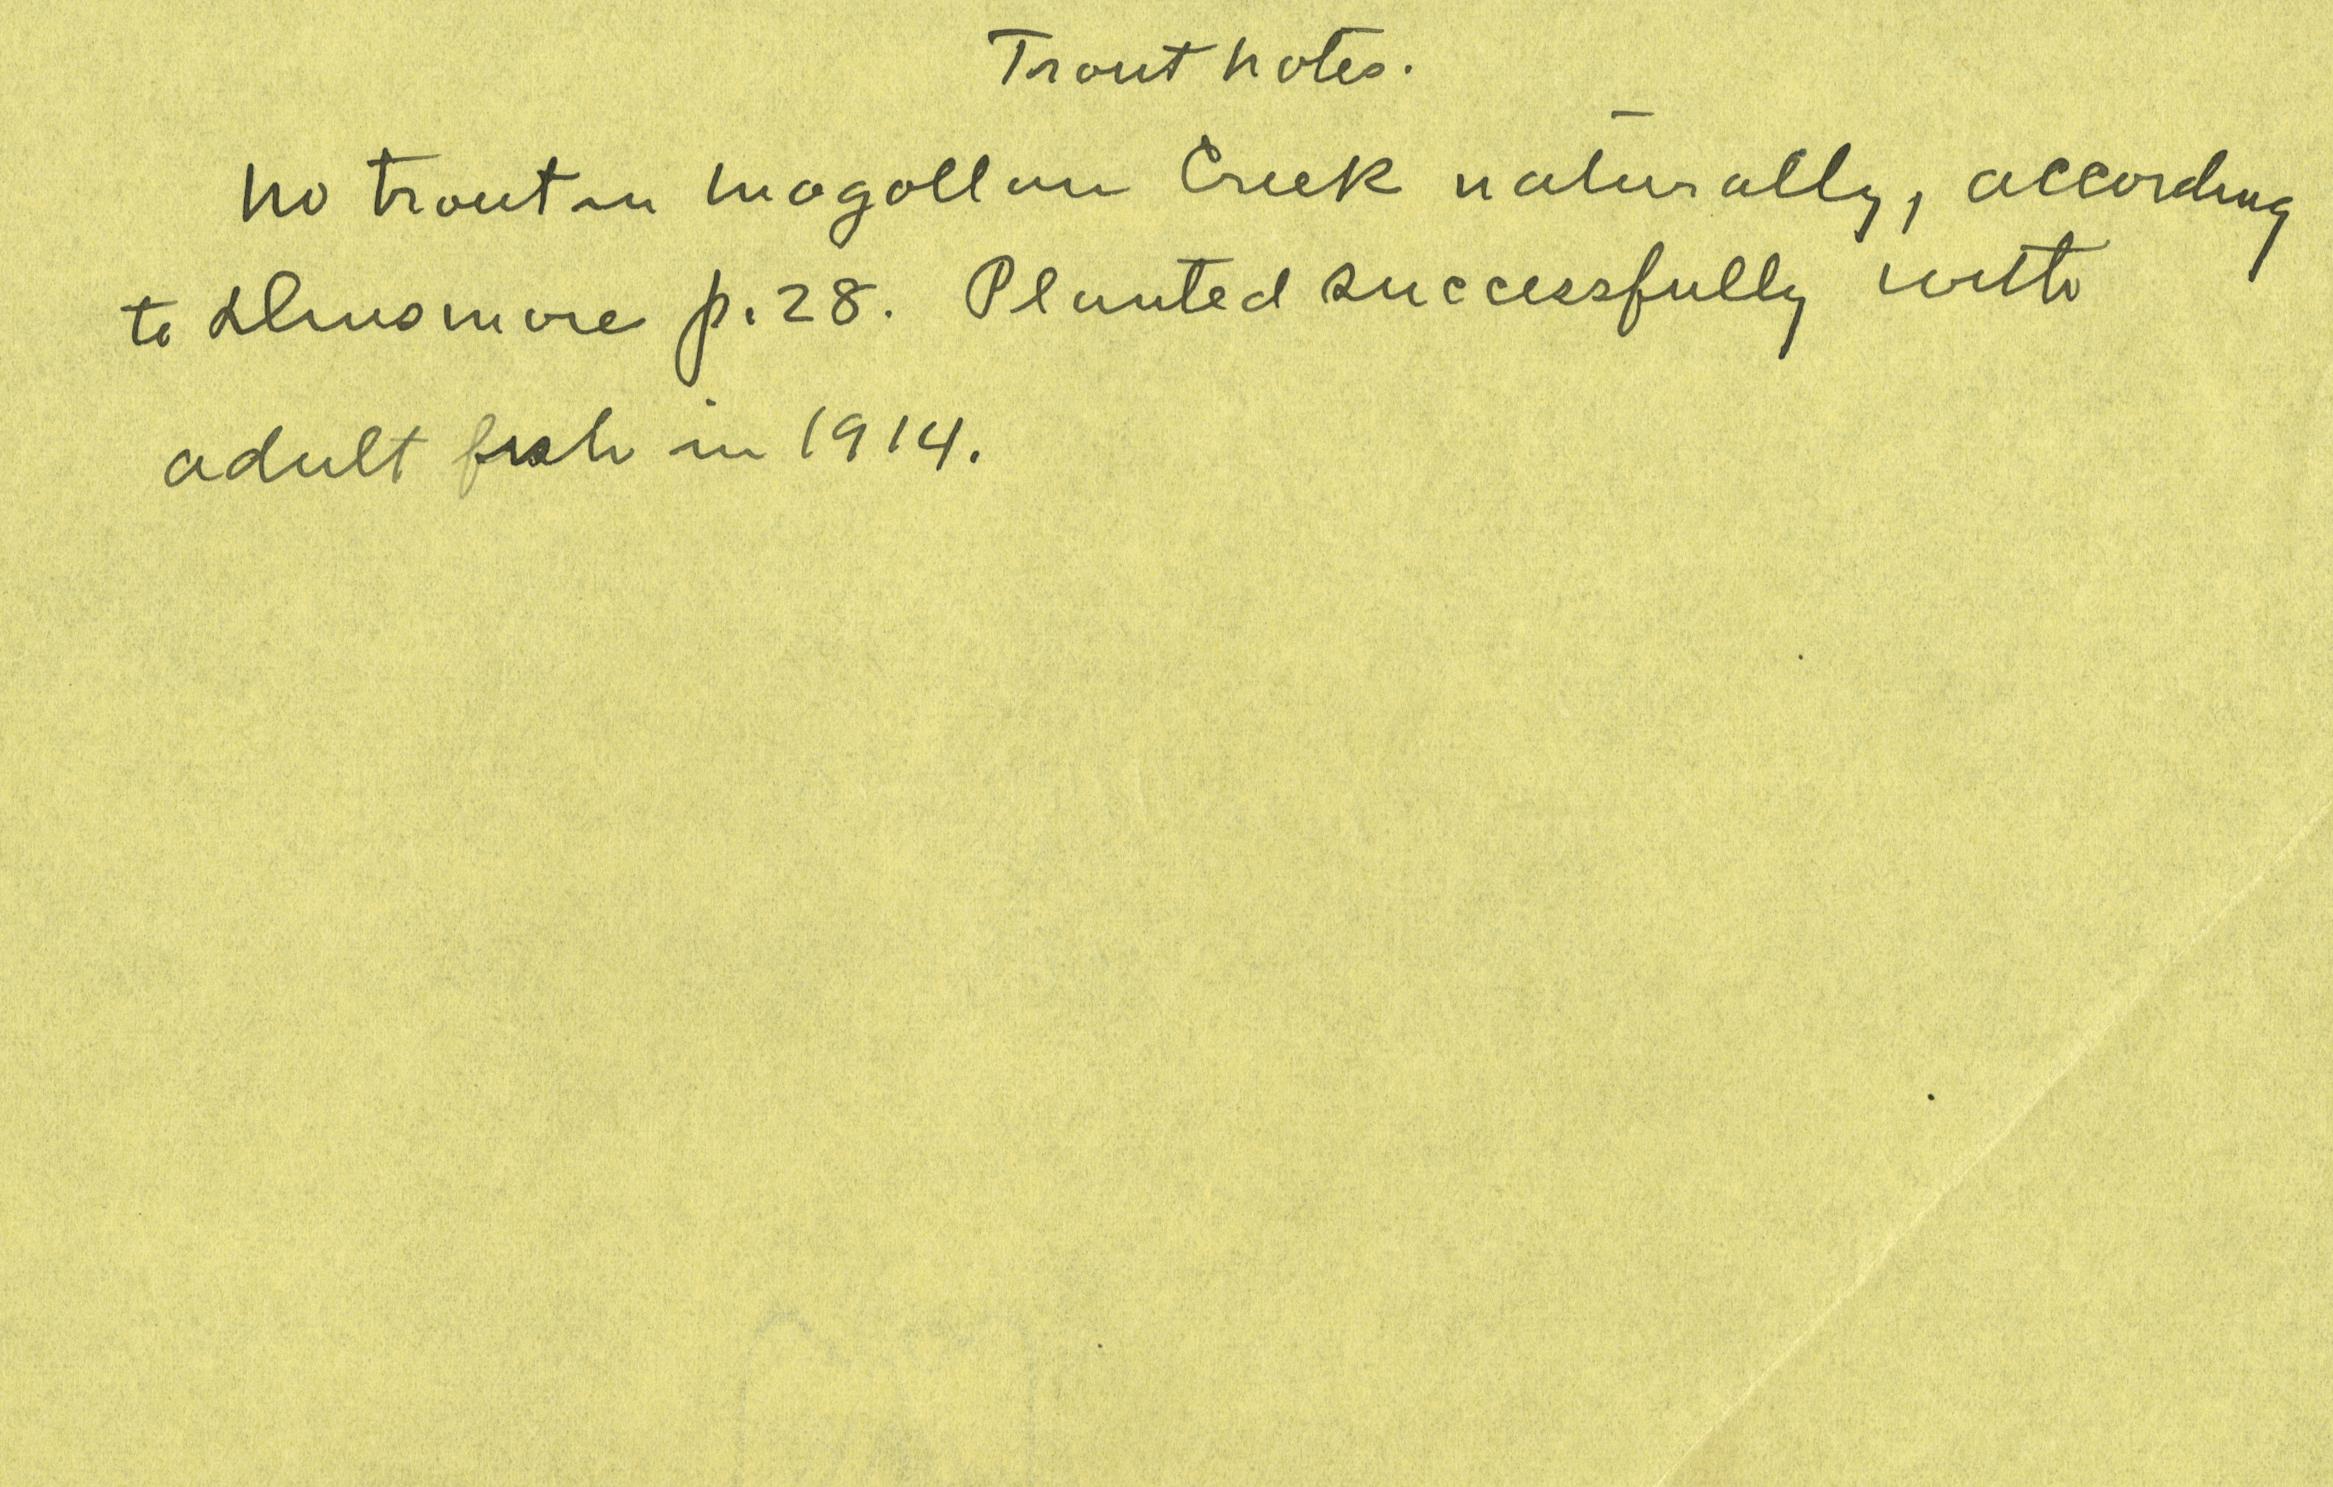 Trout Notes.
No trout in Mogollon Creek naturally, according
to Dinsmore p. 28. Planted successfully with
adult fish in 1914.